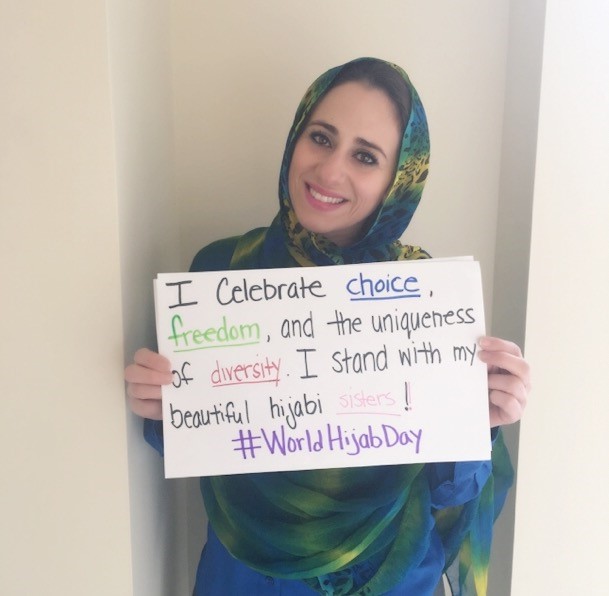 I Celebrate choice,
freedom, and the uniqueness
of diversity. I stand with my
beautiful hijabi sisters!
#WorldHijabDay